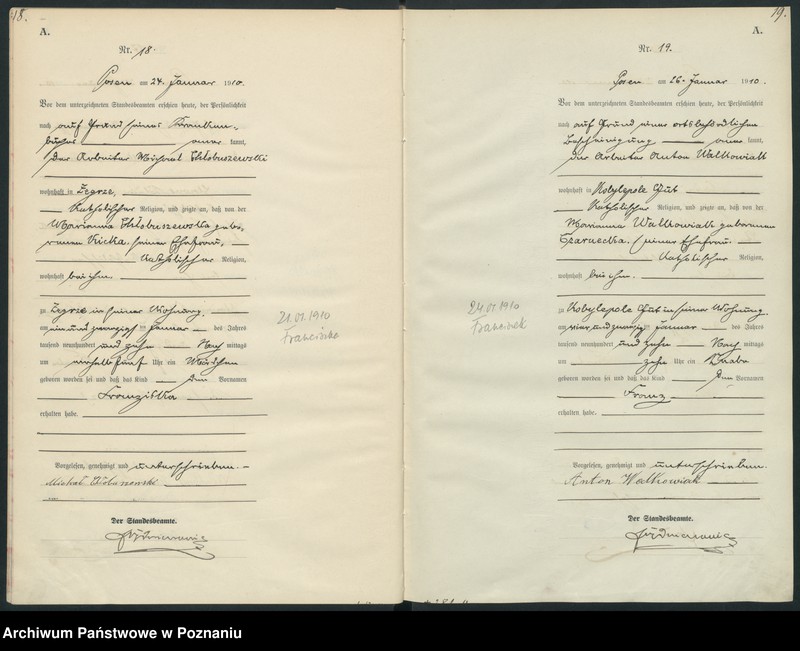 18.
A.
Nr. 18.
Posen am 24. Januar 1910.
Vor dem unterzeichneten Standesbeamten erschien heute, der Persönlichkeit
nach auf Grund seines Kranken-
buches kannt,
der Arbeiter Michael
wohnhaft in Zegrze,
katholischer Religion, und zeigte an, daß von der
Marianna gebo-
renen seiner Ehefrau,
katholischer Religion,
wohnhaft bei ihm.
zu Zegrze in seiner Wohnung,
am ein und zwanzigsten Januar des Jahres
tausend neunhundert und zehn Nach mittags
um Uhr ein Mädchen
geboren worden sei und daß das Kind den Vornamen
Franziska
erhalten habe.
Vorgelesen, genehmigt und unterschrieben.
Der Standesbeamte.
21.01.1910
Franciszka
19.
A.
Nr. 19.
Posen am 26. Januar 1910.
Vor dem unterzeichneten Standesbeamten erschien heute, der Persönlichkeit
nach auf Grund einer ortsbehördlichen
Bescheinigung kannt,
der Arbeiter Anton Walkowiak
wohnhaft in Kobylepole Gut
katholischer Religion, und zeigte an, daß von der
Marianna Walkowiak geborenen
Czarnecka, seiner Ehefrau
katholischer Religion,
wohnhaft bei ihm.
zu Kobylepole Gut in seiner Wohnung
am vier und zwanzigsten Januar des Jahres
tausend neunhundert und zehn Nach mittags
um zehn Uhr ein Knabe
geboren worden sei und daß das Kind den Vornamen
Franz
erhalten habe.
Vorgelesen, genehmigt und unterschrieben.
Anton Walkowiak
Der Standesbeamte.
24.01.1910
Franciszek
Archiwum Państwowe w Poznaniu